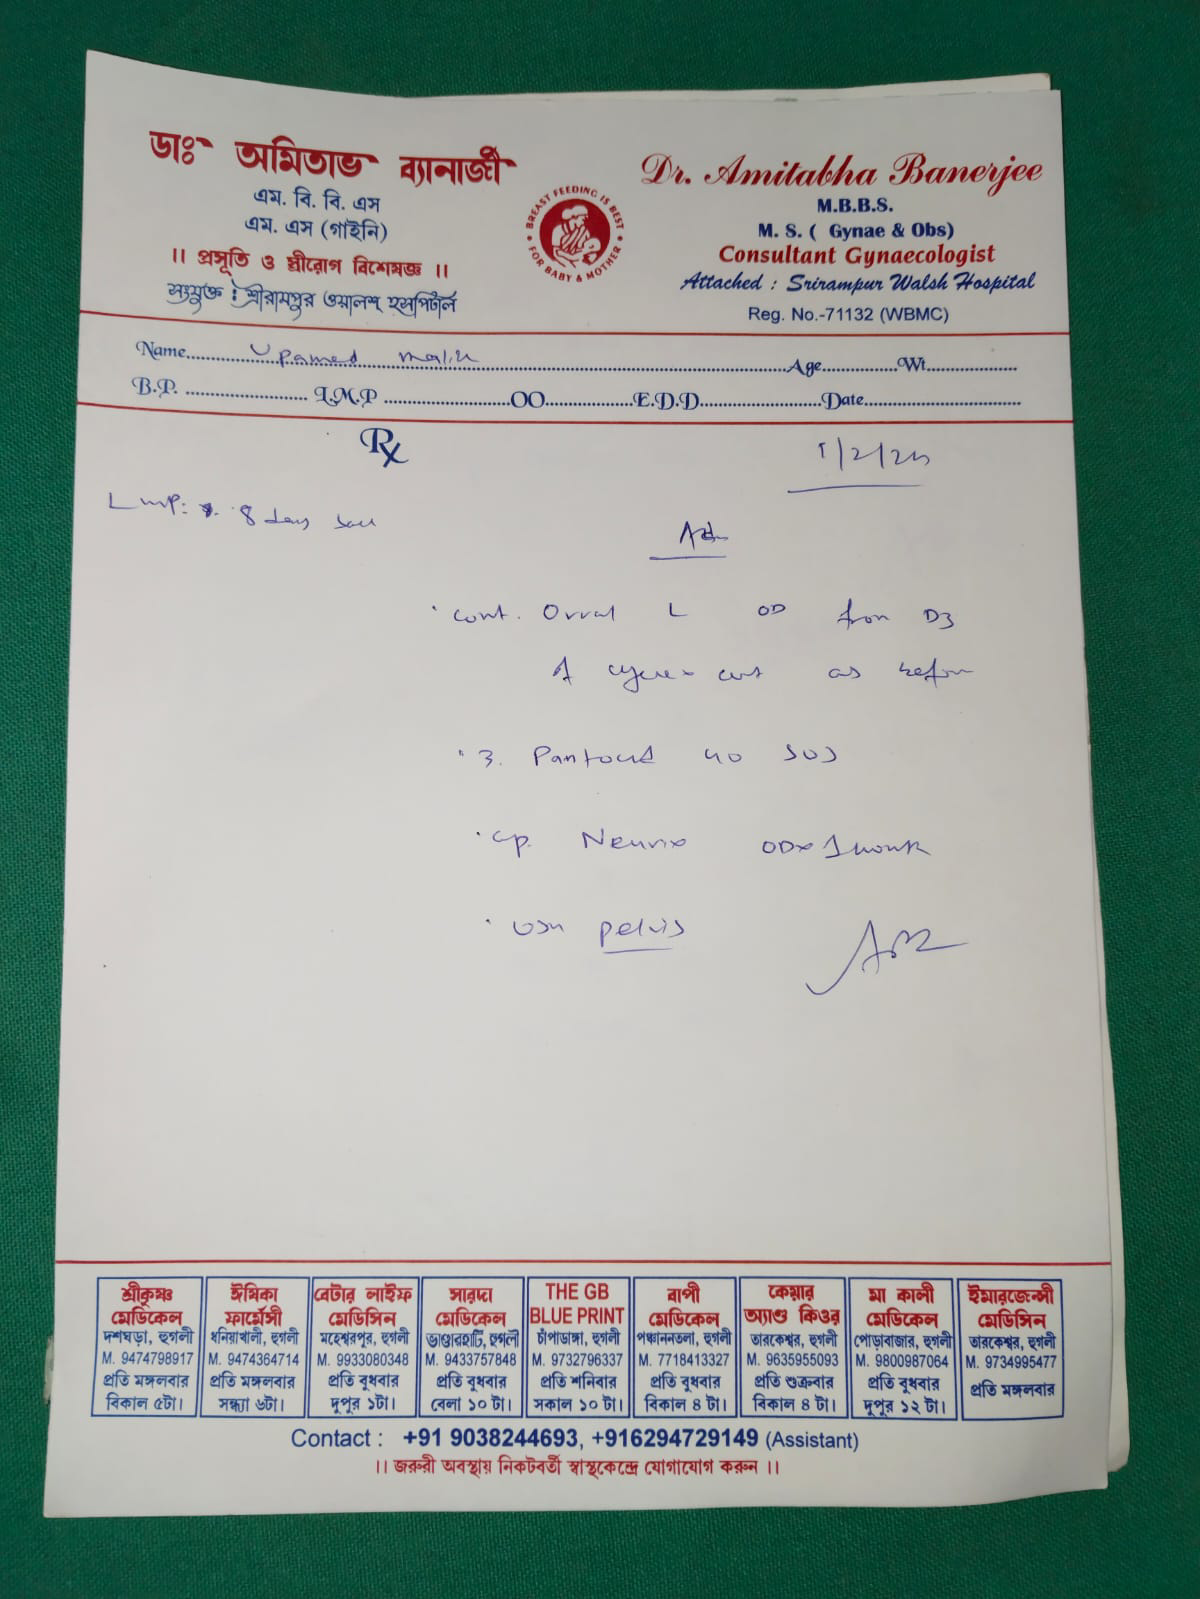 ডাঃ অমিতাভ ব্যানার্জী
এম. বি. বি. এস
এম. এস (গাইনি)
।। প্রসূতি ও স্ত্রীরোগ বিশেষজ্ঞ ।।
সংযুক্ত : শ্রীরামপুর ওয়ালশ্ হসপিটাল
BREAST FEEDING IS BEST
FOR BABY & MOTHER
Dr. Amitabha Banerjee
M.B.B.S.
M. S. ( Gynae & Obs)
Consultant Gynaecologist
Attached : Srirampur Walsh Hospital
Reg. No.-71132 (WBMC)
Name Age Wt
B.P. L.M.P OO E.D.D Date
Rx
LMP: 8 days
Adv
cont. Orral L OD from D3
of cycle cont as before
Pantocid 40 SOS
cp. Neurix OD x 1 month
USG pelvis
শ্রীকৃষ্ণ মেডিকেল
দশঘড়া, হুগলী
M. 9474798917
প্রতি মঙ্গলবার
বিকাল ৫টা।
ঈষিকা ফার্মেসী
ধনিয়াখালী, হুগলী
M. 9474364714
প্রতি মঙ্গলবার
সন্ধ্যা ৬টা।
বেটার লাইফ মেডিসিন
মহেশ্বরপুর, হুগলী
M. 9933080348
প্রতি বুধবার
দুপুর ১টা।
সারদা মেডিকেল
ভাণ্ডারহাটি, হুগলী
M. 9433757848
প্রতি বুধবার
বেলা ১০ টা।
THE GB
BLUE PRINT
চাঁপাডাঙ্গা, হুগলী
M. 9732796337
প্রতি শনিবার
সকাল ১০ টা।
বাপী মেডিকেল
পঞ্চাননতলা, হুগলী
M. 7718413327
প্রতি বুধবার
বিকাল ৪ টা।
কেয়ার অ্যাণ্ড কিওর
তারকেশ্বর, হুগলী
M. 9635955093
প্রতি শুক্রবার
বিকাল ৪ টা।
মা কালী মেডিকেল
পোড়াবাজার, হুগলী
M. 9800987064
প্রতি বুধবার
দুপুর ১২ টা।
ইমারজেন্সী মেডিসিন
তারকেশ্বর, হুগলী
M. 9734995477
প্রতি মঙ্গলবার
Contact : +91 9038244693, +916294729149 (Assistant)
।। জরুরী অবস্থায় নিকটবর্তী স্বাস্থকেন্দ্রে যোগাযোগ করুন ।।